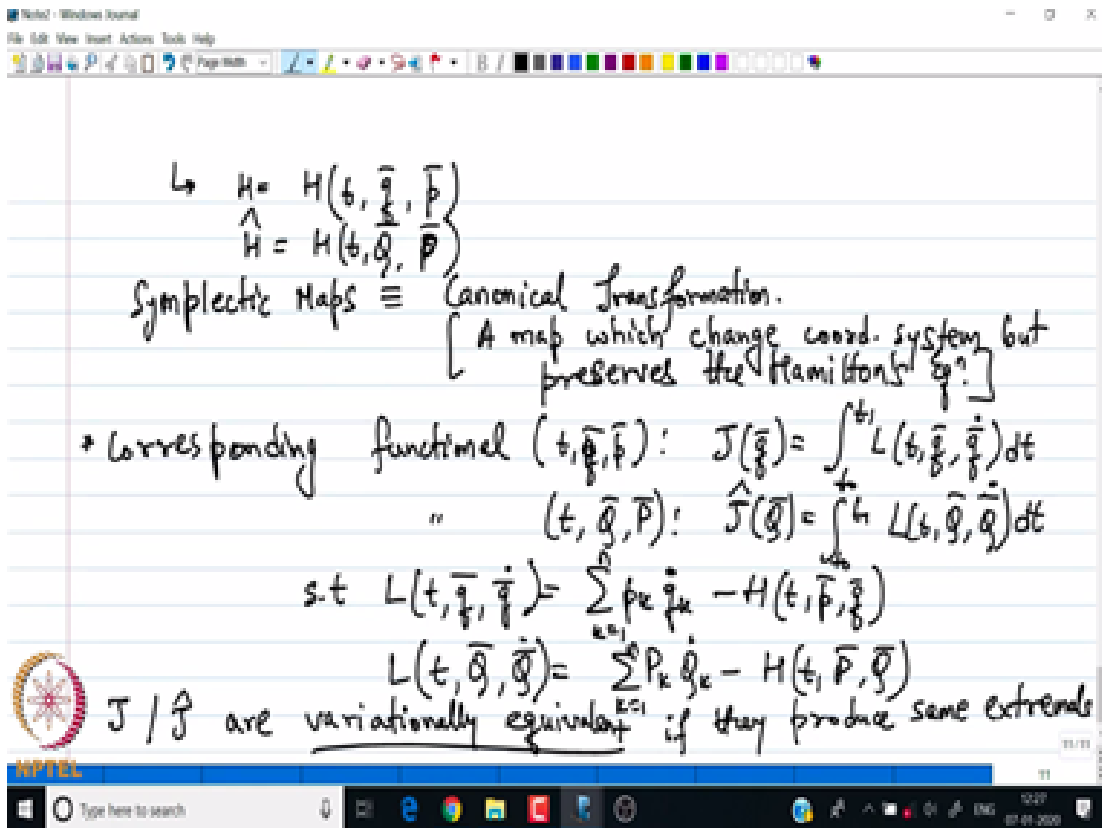 Note2 - Windows Journal
File Edit View Insert Actions Tools Help
Page Width
↳ H = H(t, q̄, p̄)
Ĥ = H(t, Q̄, P̄)
Symplectic Maps ≡ Canonical Transformation.
[A map which change coord. system but
preserves the Hamilton's Eqⁿ.]
* Corresponding functional (t, q̄, p̄): J(q̄) = ∫_{t₀}^{t₁} L(t, q̄, q̄̇) dt
" (t, Q̄, P̄): Ĵ(Q̄) = ∫_{t₀}^{t₁} L(t, Q̄, Q̄̇) dt
s.t L(t, q̄, q̄̇) = ∑_{k=1}^{n} pₖ q̇ₖ - H(t, p̄, q̄)
L(t, Q̄, Q̄̇) = ∑_{k=1}^{n} Pₖ Q̇ₖ - H(t, P̄, Q̄)
J / Ĵ are variationally equivalent if they produce same extremals
11/11
NPTEL
11
Type here to search
ENG
12:27
07-01-2020